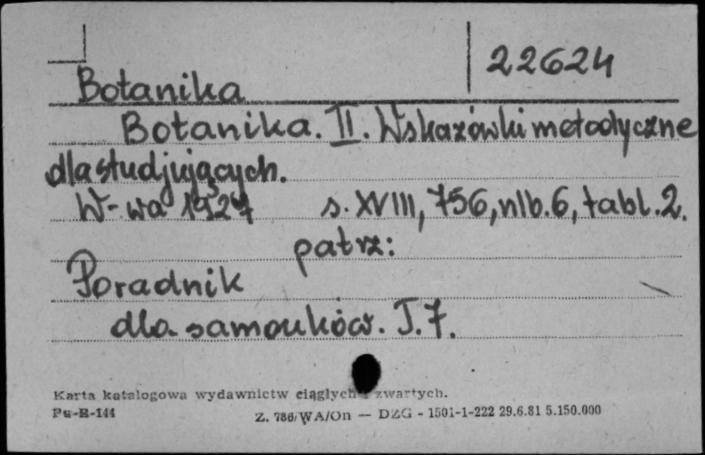 22624
Botanika
Botanika. II. Wskazówki metodyczne
dla studjujących.
W-wa 1927 s. XVIII, 756, nlb. 6, tabl. 2.
patrz:
Poradnik
dla samouków. T. 7.
Karta katalogowa wydawnictw ciągłych i zwartych.
Pu-B-144 Z. 786/WA/On — DZG - 1501-1-222 29.6.81 5.150.000